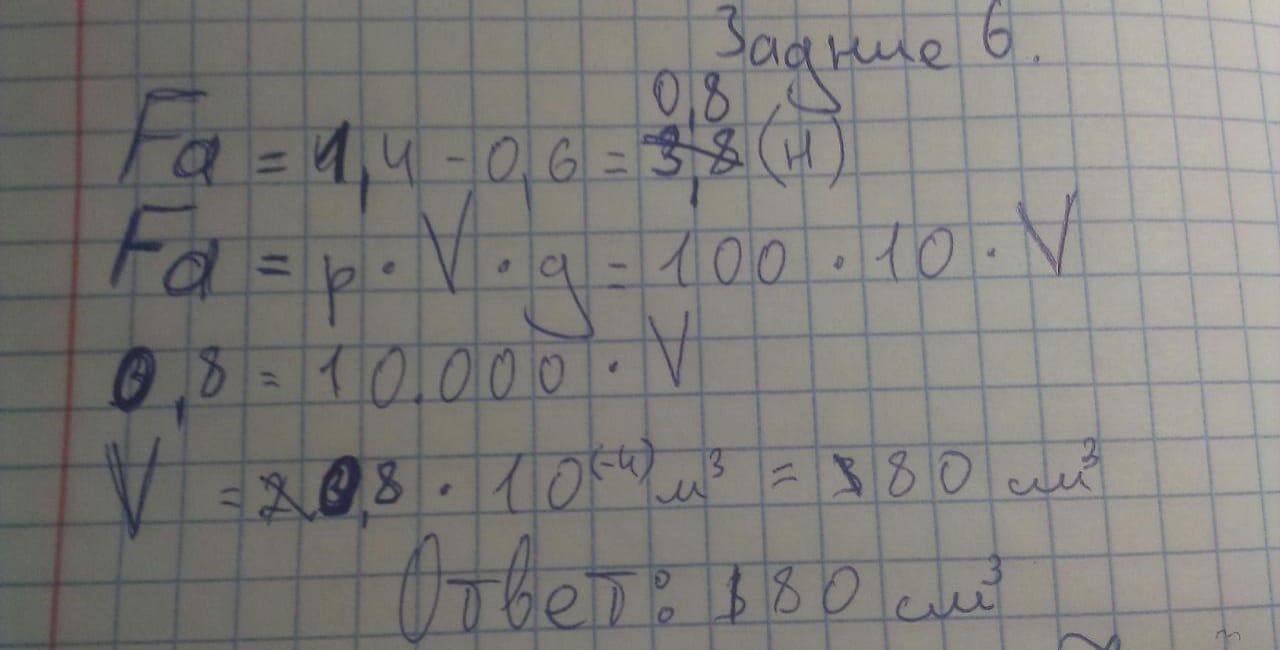 Задние 6.
Fa = 1,4 - 0,6 = 0,8 (н)
Fa = p · V · g = 100 · 10 · V
0,8 = 10.000 · V
V = 0,8 · 10^(-4) м³ = 80 см³
Ответ: 80 см³